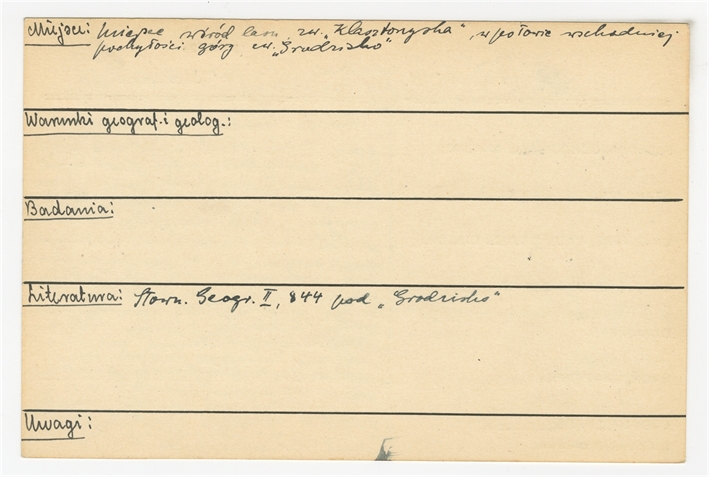 Miejsce: Miejsce wśród lasu zw. „Klasztorzyska", w połowie wschodniej
pochyłości góry zw. „Grodzisko"
Warunki geograf. i geolog.:
Badania:
Literatura: Słown. Geogr. II, 844 pod „Grodzisko"
Uwagi: